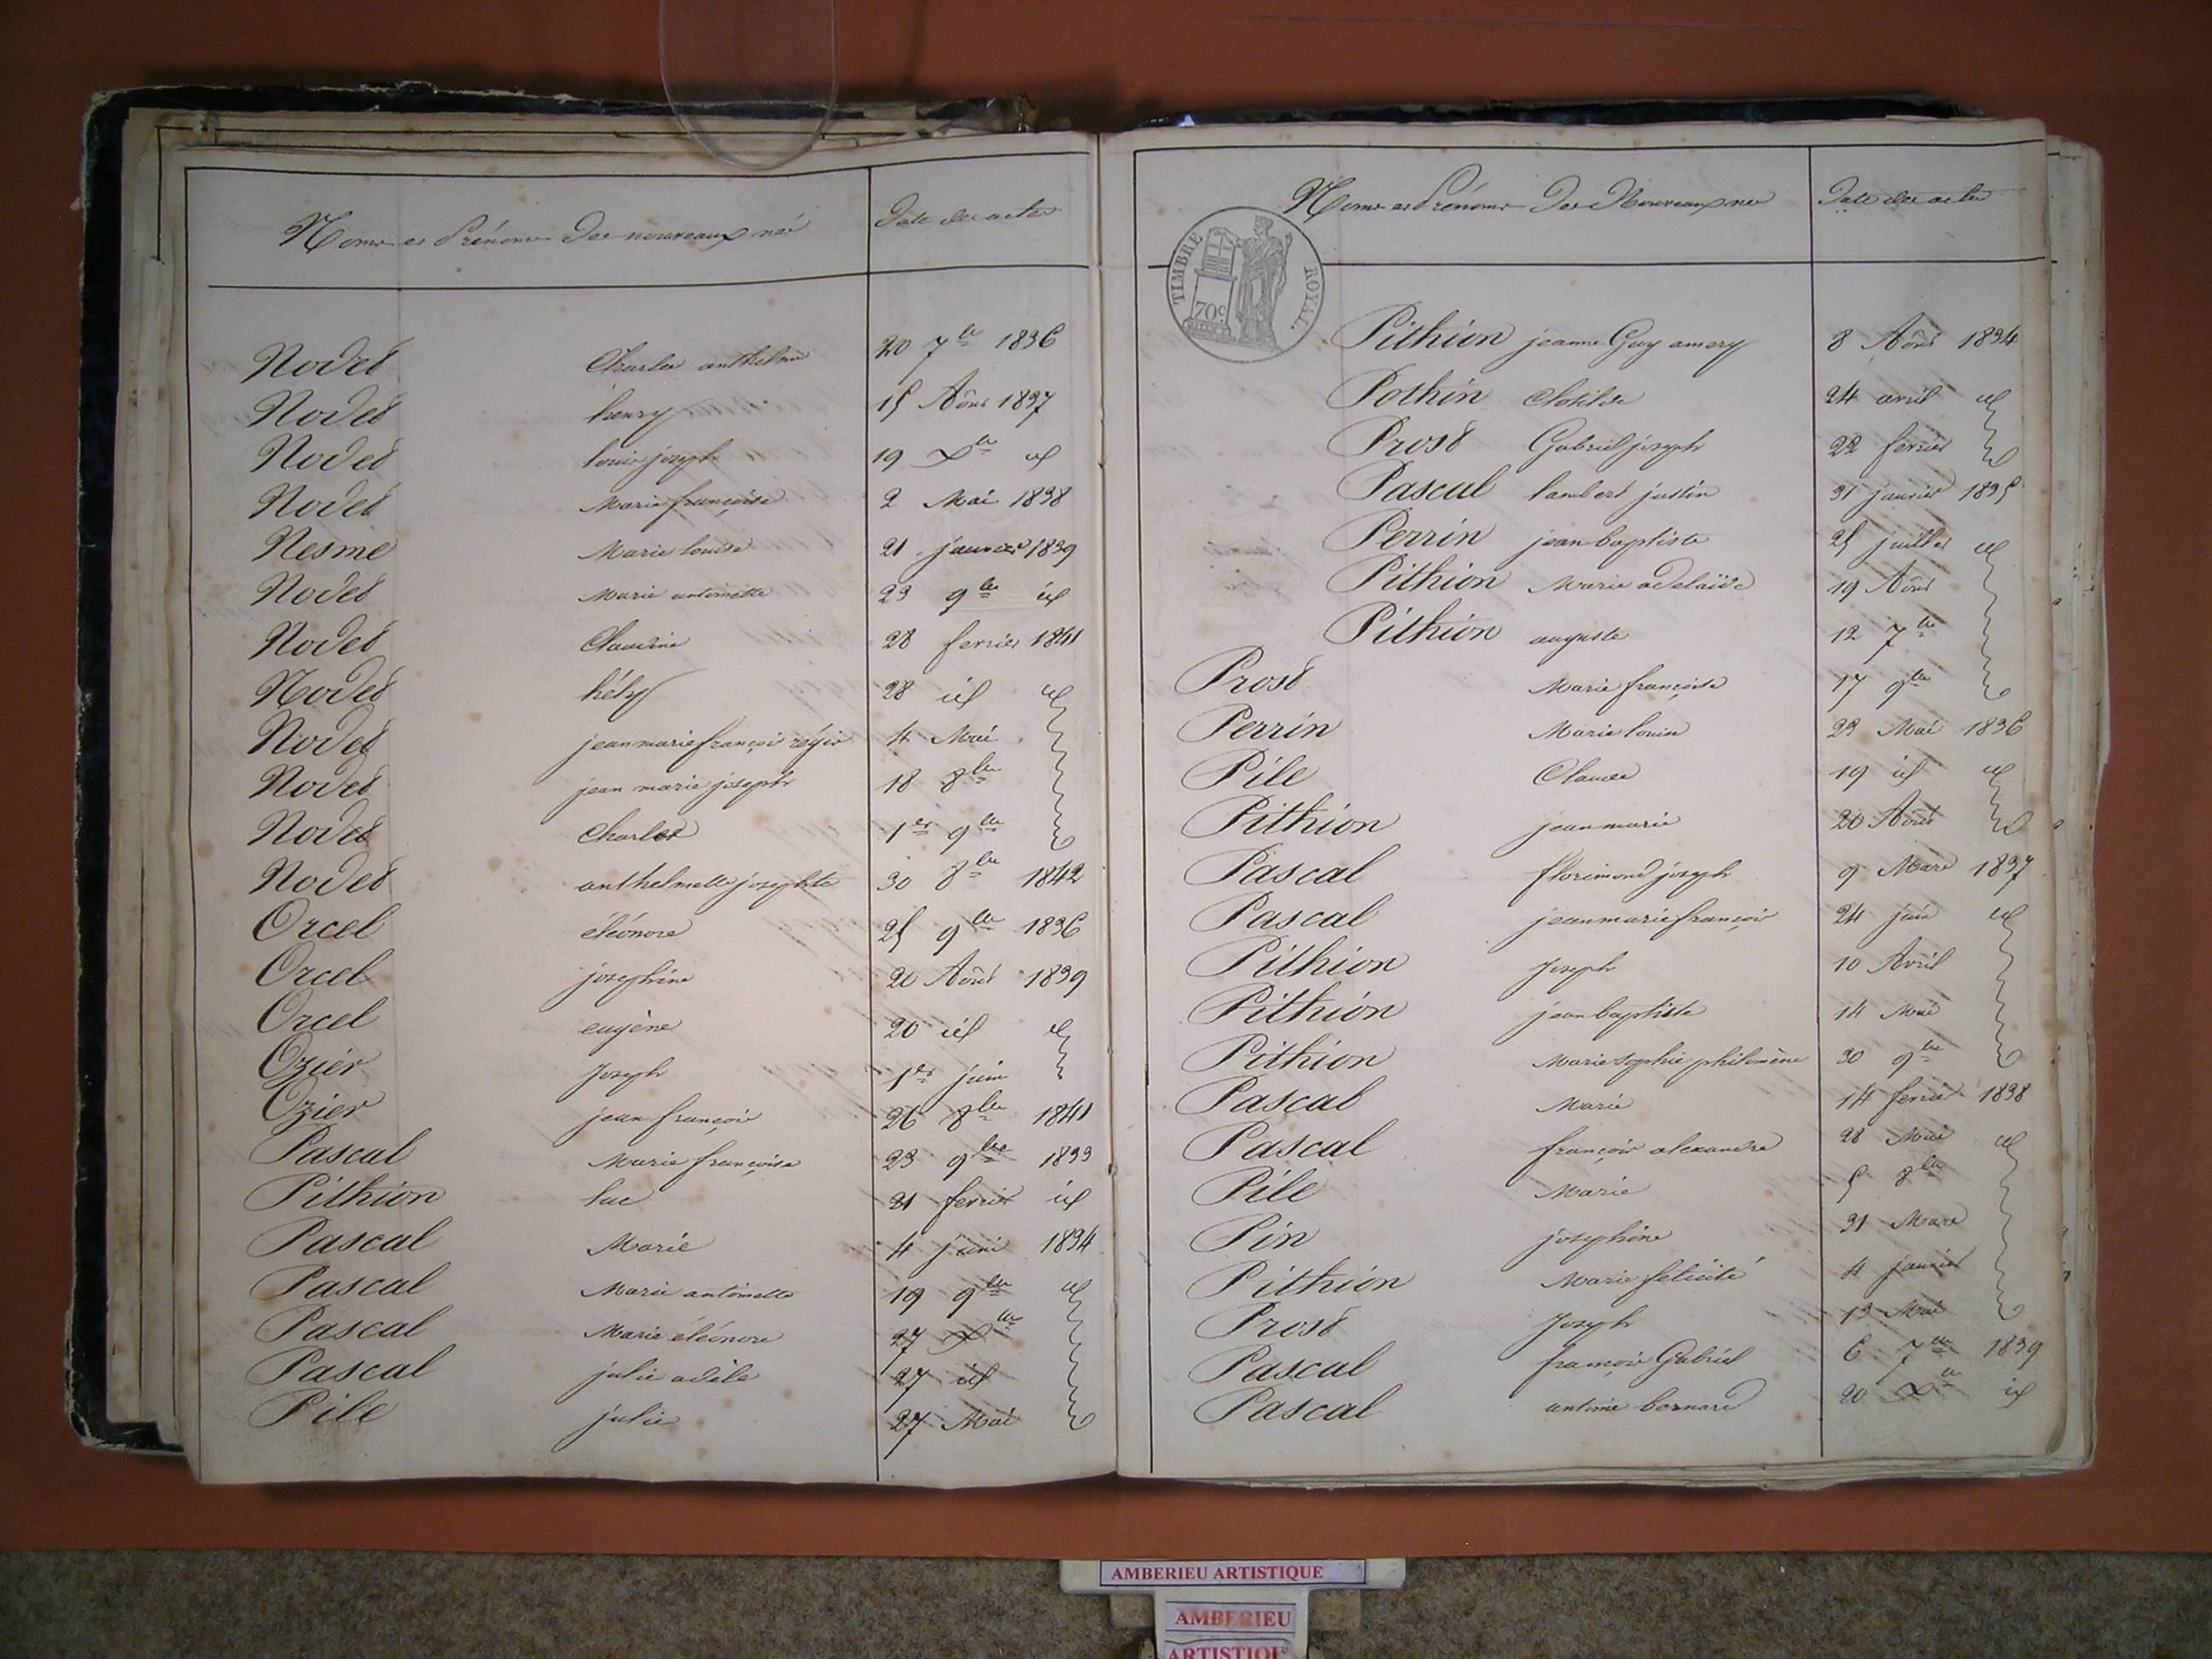 Noms et Prénoms Des nouveaux né Date des actes
Nodet Charles anthelme 20 7bre 1836
Nodet henry 15 Août 1837
Nodet louis joseph 19 Xbre id
Nodet Marie françoise 2 Mai 1838
Nesme Marie louise 21 janvier 1839
Nodet Marie antoinette 23 9bre id
Nodet Claudine 28 fevrier 1841
Nodet hély 28 id id
Nodet jean marie françois régis 4 Mai
Nodet jean marie joseph 18 8bre
Nodet Charles 1er 9bre
Nodet anthelmette josephte 30 8bre 1842
Orcel éléonore 25 9bre 1836
Orcel josephine 20 Août 1839
Orcel eugène 20 id id
Ozier Joseph 1er juin
Ozier jean françois 26 8bre 1841
Pascal Marie françoise 23 9bre 1833
Pithion luc 21 fevrier id
Pascal Marie 4 juin 1834
Pascal Marie antoinette 19 9bre id
Pascal Marie éléonore 27 Xbre
Pascal julie adèle 27 id
Pile julie 27 Mai
Noms et Prénoms Des Nouveaux né Date des actes
TIMBRE ROYAL.
70c
Pithion jeanne Guy amery 8 Août 1834
Pothin Clotilde 24 avril id
Prost Gabriel joseph 22 fevrier
Pascal lambert justin 31 janvier 1835
Perrin jean baptiste 25 juillet id
Pithion Marie adelaïde 19 Août
Pithion auguste 12 7bre
Prost Marie françoise 17 9bre
Perrin Marie louise 23 Mai 1836
Pile Claude 19 id id
Pithion jean marie 20 Août
Pascal florimond joseph 9 Mars 1837
Pascal jean marie françois 24 juin id
Pithion Joseph 10 Avril
Pithion jean baptiste 14 Mai
Pithion Marie sophie philomène 30 9bre
Pascal Marie 14 fevrier 1838
Pascal françois alexandre 28 Mai id
Pile Marie 5 8bre
Pin josephine 31 Mars
Pithion Marie felicité 4 janvier
Prost Joseph 13 Mai
Pascal françois Gabriel 6 7bre 1839
Pascal antime bernard 20 Xbre id
AMBERIEU ARTISTIQUE
AMBERIEU
ARTISTIQUE